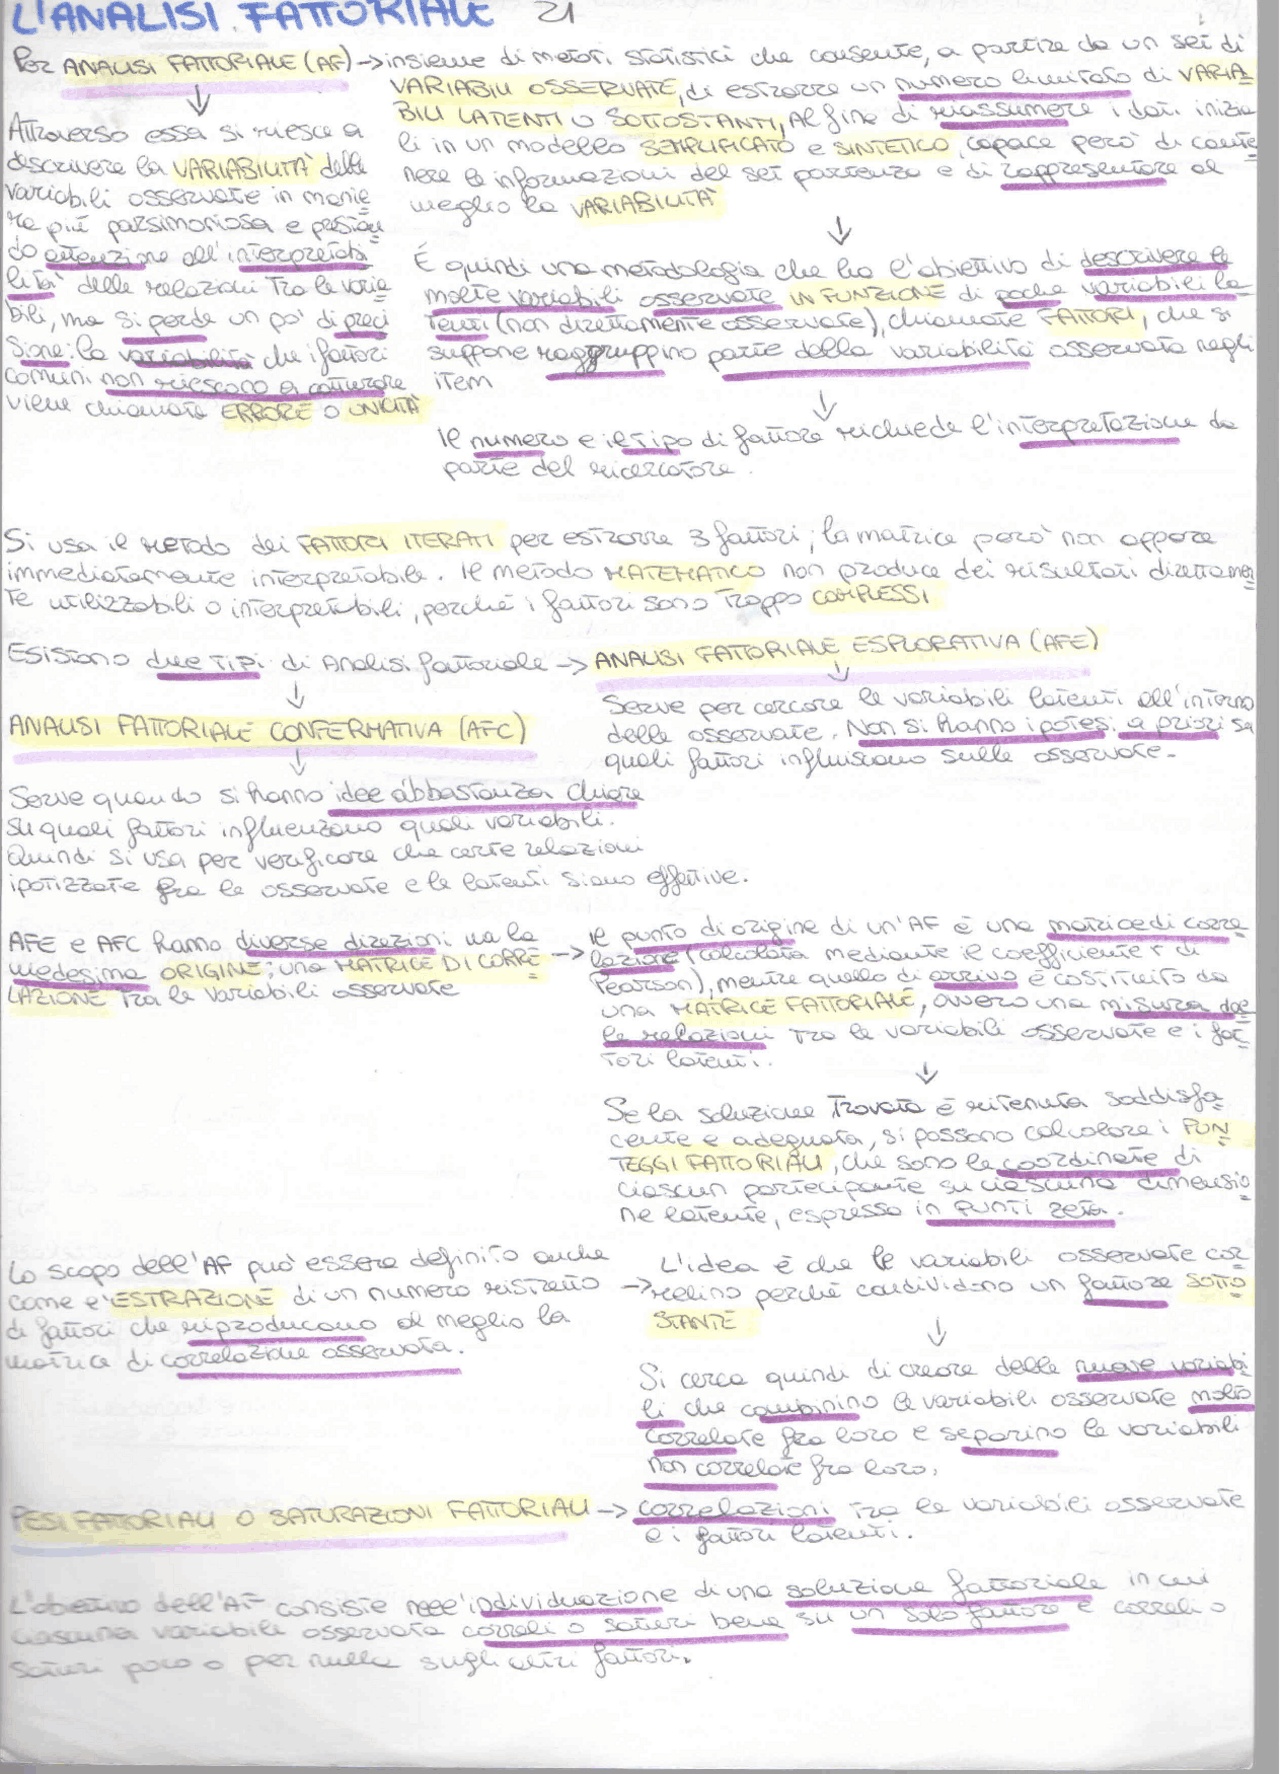 L'ANALISI FATTORIALE 21
Per ANALISI FATTORIALE (AF) → insieme di metodi statistici che consente, a partire da un set di
VARIABILI OSSERVATE, di estrarre un numero limitato di VARIA
BILI LATENTI O SOTTOSTANTI, al fine di riassumere i dati inizia
li in un modello SEMPLIFICATO e SINTETICO, capace però di conte
nere le informazioni del set partenza e di rappresentare al
meglio la VARIABILITÀ
↓
Attraverso essa si riesce a
descrivere la VARIABILITÀ delle
variabili osservate in manie
ra più parsimoniosa e prestan
do attenzione all'interpretabi
lità delle relazioni tra le varia
bili, ma si perde un po' di preci
sione: la variabilità che i fattori
comuni non riescono a catturare
viene chiamata ERRORE O UNICITÀ
↓
È quindi una metodologia che ha l'obiettivo di descrivere le
molte variabili osservate IN FUNZIONE di poche variabili la
tenti (non direttamente osservate), chiamate FATTORI, che si
suppone raggruppino parte della variabilità osservata negli
item
↓
Il numero e il tipo di fattore richiede l'interpretazione da
parte del ricercatore.
Si usa il metodo dei FATTORI ITERATI per estrarre 3 fattori; la matrice però non appare
immediatamente interpretabile. Il metodo MATEMATICO non produce dei risultati direttamen
te utilizzabili o interpretabili, perché i fattori sono troppo COMPLESSI
Esistono due tipi di Analisi fattoriale → ANALISI FATTORIALE ESPLORATIVA (AFE)
↓
Serve per cercare le variabili latenti all'interno
delle osservate. Non si hanno ipotesi a priori su
quali fattori influiscono sulle osservate.
↓
ANALISI FATTORIALE CONFERMATIVA (AFC)
↓
Serve quando si hanno idee abbastanza chiare
su quali fattori influenzano quali variabili.
Quindi si usa per verificare che certe relazioni
ipotizzate fra le osservate e le latenti siano effettive.
AFE e AFC hanno diverse direzioni ma la
medesima ORIGINE: una MATRICE DI CORRE
LAZIONE tra le variabili osservate
→ Il punto di origine di un'AF è una matrice di corre
lazione (calcolata mediante il coefficiente r di
Pearson), mentre quello di arrivo è costituito da
una MATRICE FATTORIALE, ovvero una misura del
le relazioni tra le variabili osservate e i fat
tori latenti.
↓
Se la soluzione trovata è ritenuta soddisfa
cente e adeguata, si possono calcolare i PUN
TEGGI FATTORIALI, che sono le coordinate di
ciascun partecipante su ciascuna dimensio
ne latente, espresso in punti zeta.
Lo scopo dell'AF può essere definito anche
come l'ESTRAZIONE di un numero ristretto
di fattori che riproducano al meglio la
matrice di correlazione osservata.
→ L'idea è che le variabili osservate cor
relino perché condividono un fattore SOTTO
STANTE
↓
Si cerca quindi di creare delle nuove variabi
li che combinino le variabili osservate molto
correlate fra loro e separino le variabili
non correlate fra loro.
PESI FATTORIALI O SATURAZIONI FATTORIALI → correlazioni tra le variabili osservate
e i fattori latenti.
L'obiettivo dell'AF consiste nell'individuazione di una soluzione fattoriale in cui
ciascuna variabile osservata correli o saturi bene su un solo fattore e correli o
saturi poco o per nulla sugli altri fattori.